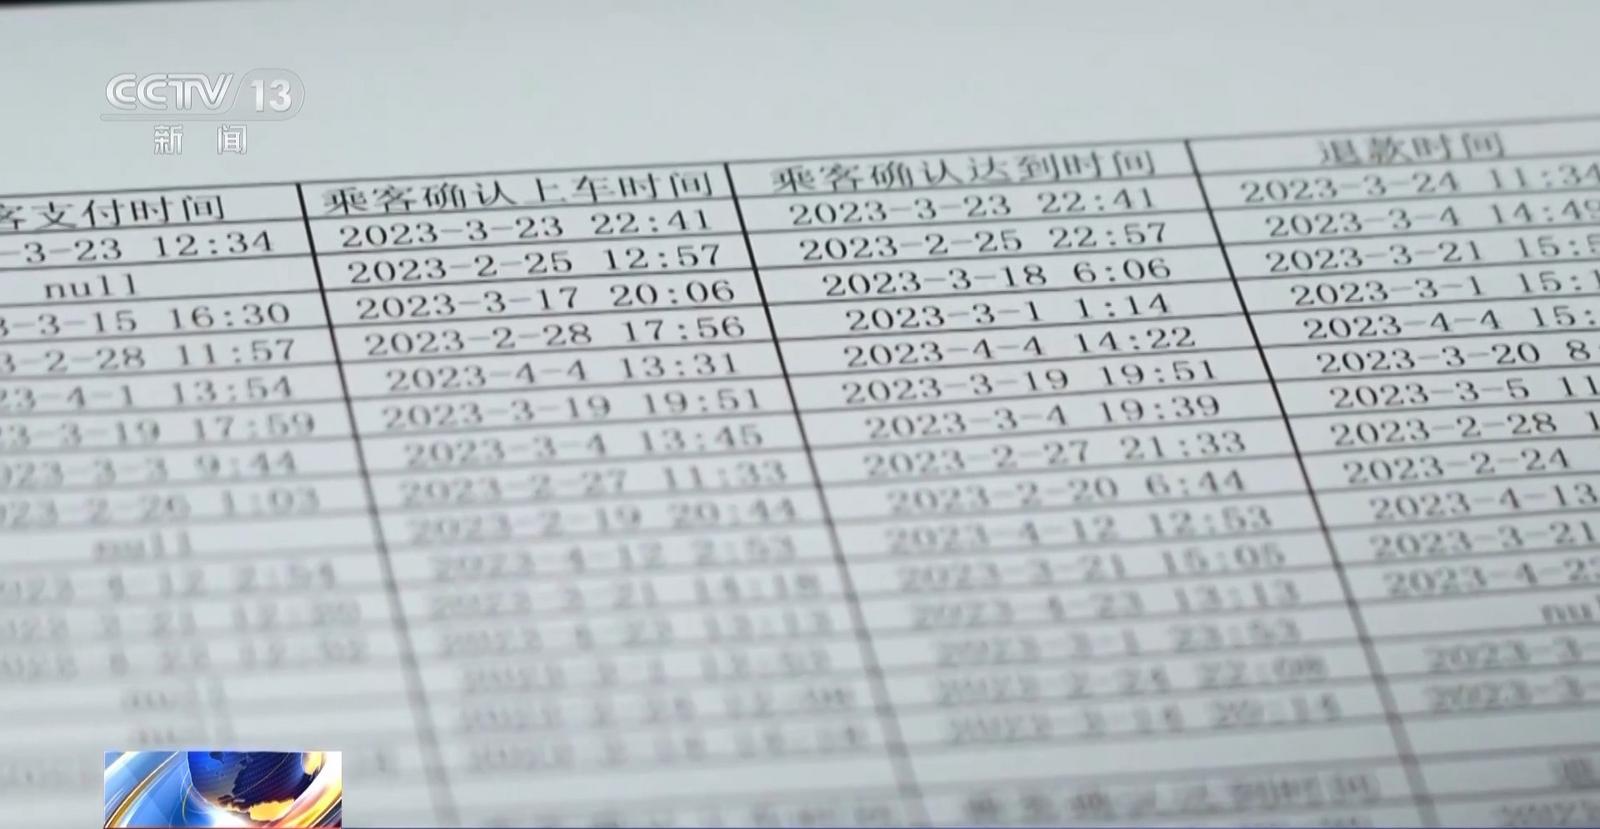 CCTV 13
新闻
客支付时间 乘客确认上车时间 乘客确认达到时间 退款时间
-3-23 12:34 2023-3-23 22:41 2023-3-23 22:41 2023-3-24 11:34
null 2023-2-25 12:57 2023-2-25 22:57 2023-3-4 14:49
3-3-15 16:30 2023-3-17 20:06 2023-3-18 6:06 2023-3-21 15:5
3-2-28 11:57 2023-2-28 17:56 2023-3-1 1:14 2023-3-1 15:1
23-4-1 13:54 2023-4-4 13:31 2023-4-4 14:22 2023-4-4 15:
23-3-19 17:59 2023-3-19 19:51 2023-3-19 19:51 2023-3-20 8
023-3-3 9:44 2023-3-4 13:45 2023-3-4 19:39 2023-3-5 11
023-2-26 1:03 2023-2-27 11:33 2023-2-27 21:33 2023-2-28 1
null 2023-2-19 20:44 2023-2-20 6:44 2023-2-24
2023-4-12 2:54 2023-4-12 2:53 2023-4-12 12:53 2023-4-13
2023-3-21 14:18 2023-3-21 15:05 2023-3-21
2023-4-23 13:13 2023-4-23 13:13 2023-4-23
2023-3-1 23:53